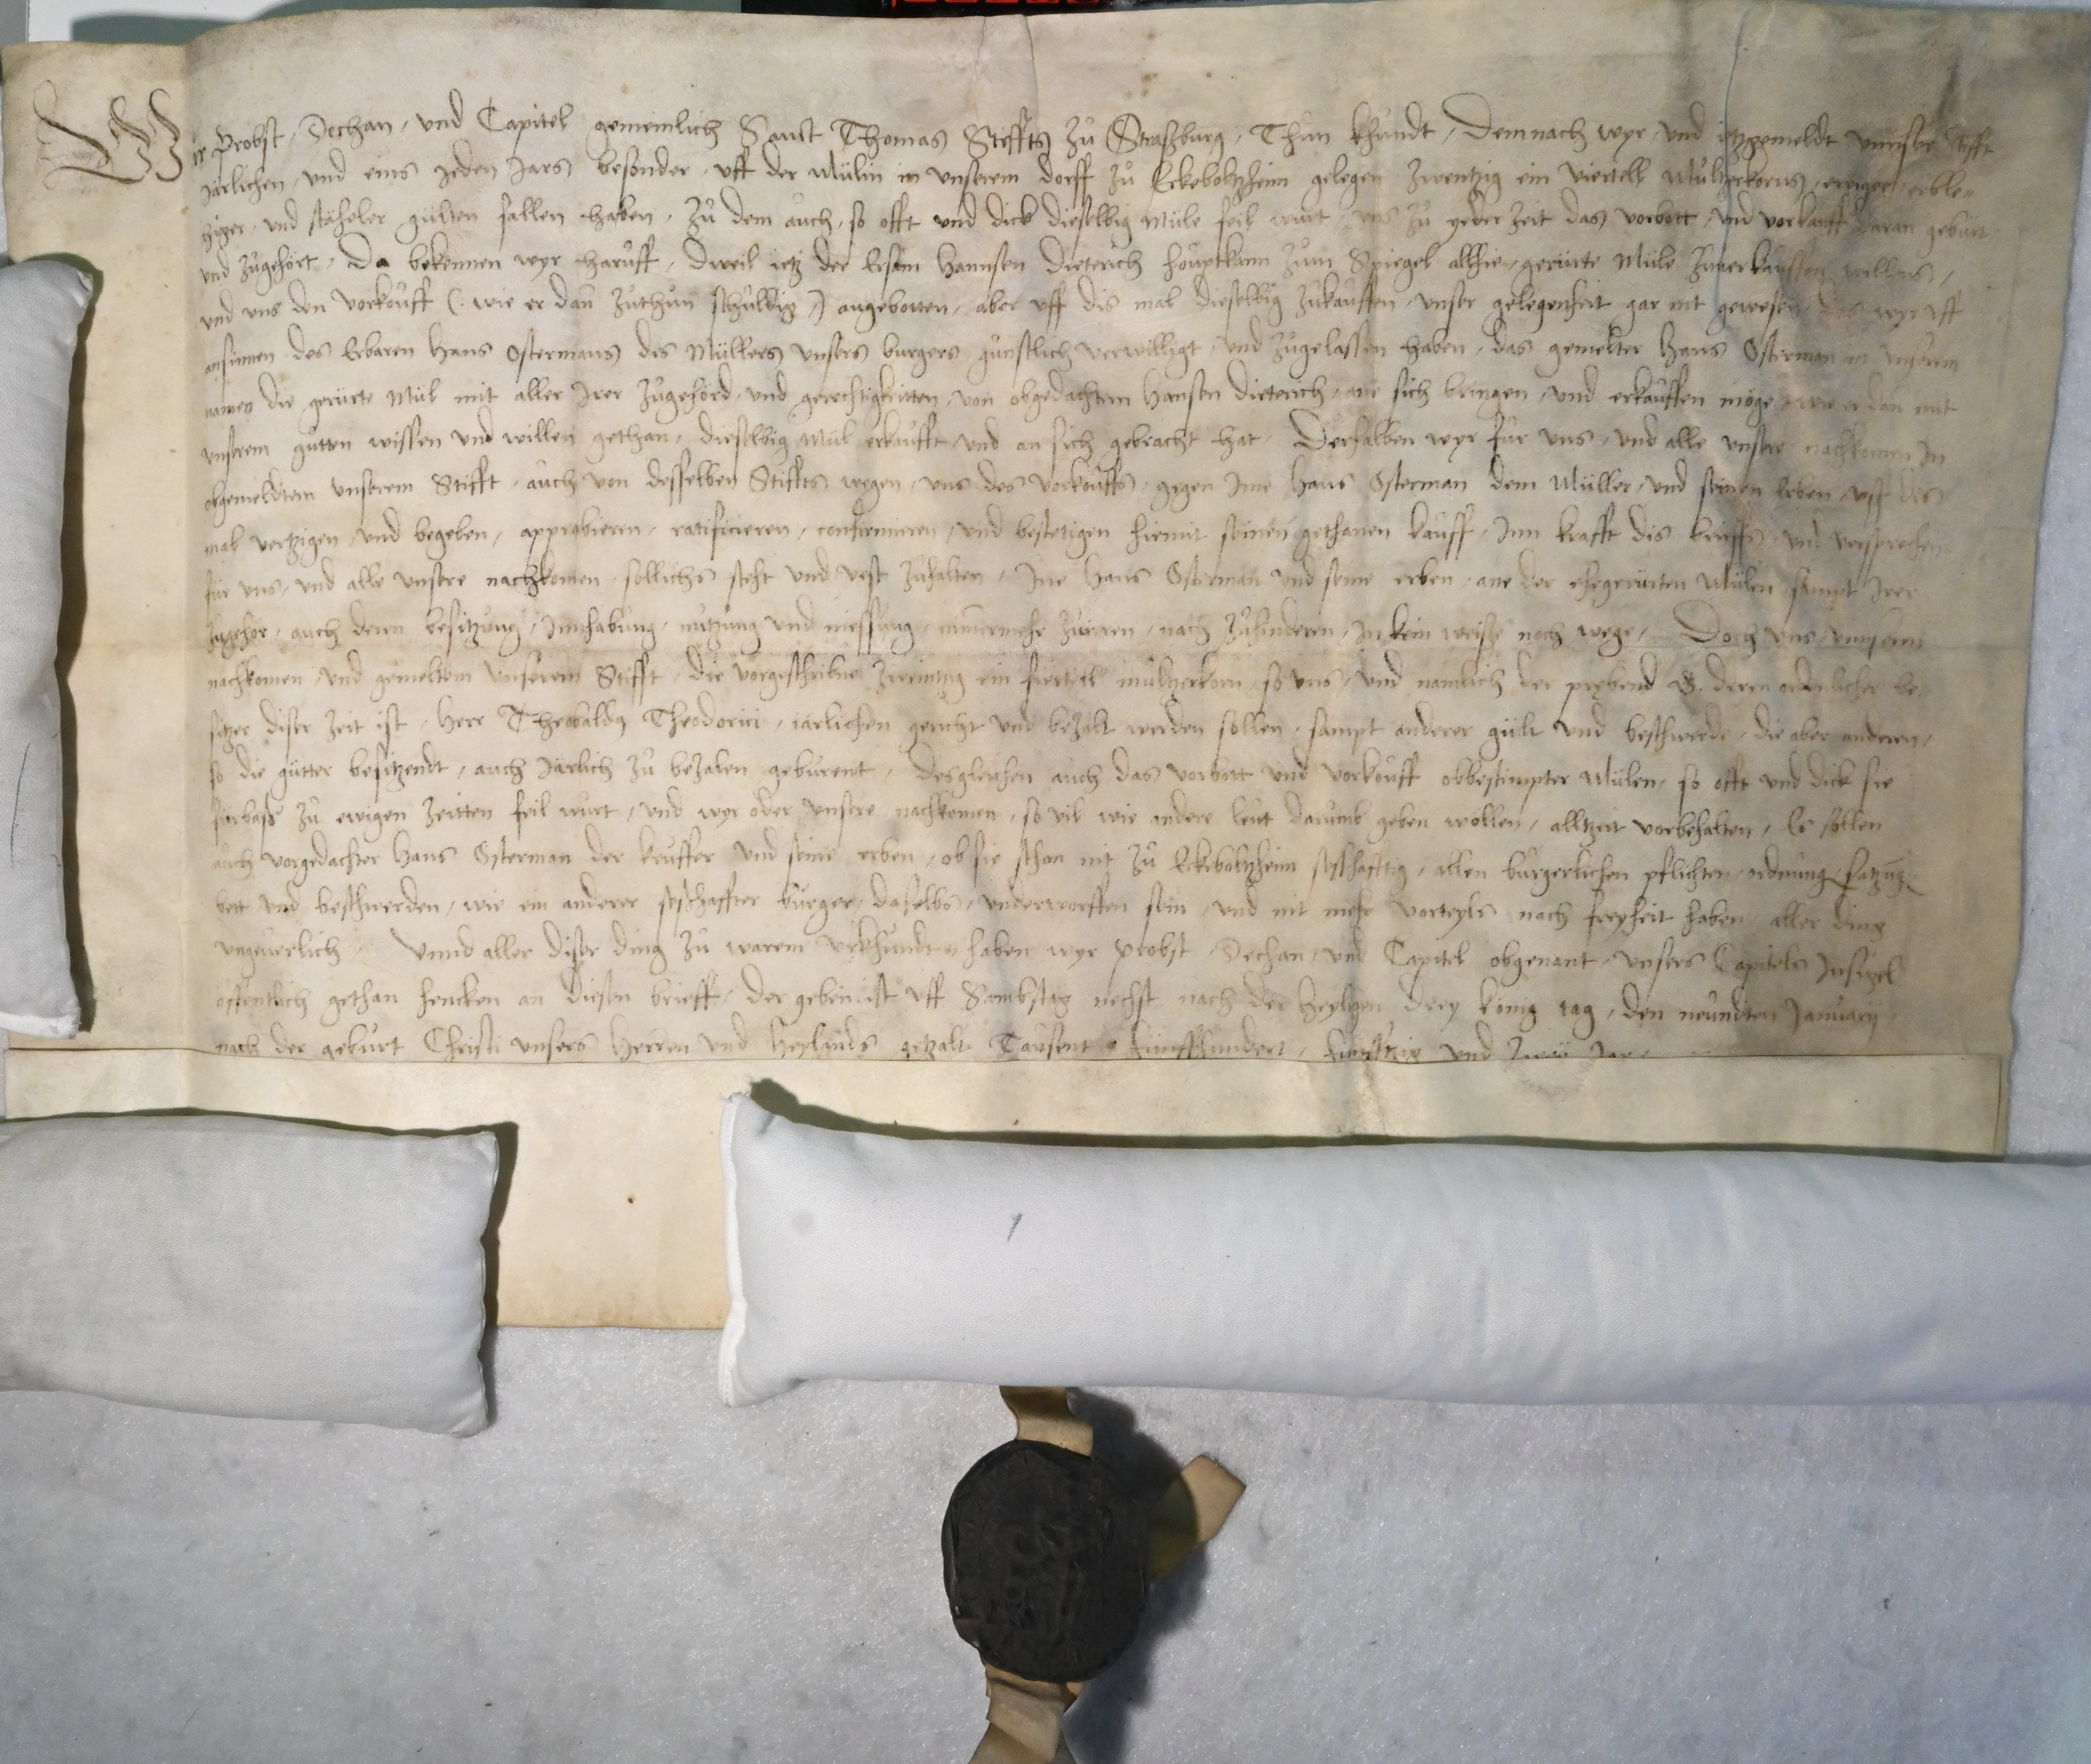 Wir Probst, Dechan, und Capitel gemeinlich Sanct Thomas Steffts zů Straßburg, Thůn khundt, Demnach wyr, und ietzgemeldt unnser Stifft
järlichen, und eins jeden Jars besonder, uff der Mülin in unserem dorff zů Eckeboltzheim gelegen zwentzig ein viertell Mültzerkorns, ewiger, erble-
ziger, und stäheler gülten fallen haben, zů dem auch, so offt und dick dieselbig Müle feil wůrt, uns zů yeder zeit das vorbott, und vorkauff daran gebürt
und zůgehört, Da bekennen wyr haruff, dweil ietz der Ersam Hannsen Dieterich houptkann zům Spiegel allhie, gerürte Müle zuuerkauffen willens,
und uns den vorkouff (: wie er dan zůthůn schůldig :) angebotten, aber uff dis mal dieselbig zůkauffen, unser gelegenheit gar nit gewesen, das wyr uff
ansinnen des Erbaren Hans Ostermans des Müllers unsers burgers günstlich verwilligt, und zůgelassen haben, das gemelter Hans Osterman in unserem
namen die gerürte Mül mit aller Irer zůgehörd, und gerechtigkeitten, von obgedachtem Hansen Dieterich, ane sich bringen, und erkauffen möge, wie er dan mit
unserem gůtten wissen und willen gethan, dieselbig Mül erkaufft, und an sich gebracht hat, Derhalben wyr für uns, und alle unsere nachkomen In
obgemeldtem unserem Stifft, auch von desselben Stiffts wegen, uns des vorkouffs, gegen Ime Hans Osterman dem Müller, und seinen Erben, uff dis
mal vertzigen, und begeben, approbieren, ratificieren, confirmieren, und bestetigen hiemit seinen gethanen kauff, Inn krafft dis brieffs, und versprechen
für uns, und alle unsere nachkomen, sollichs steht und vest zůhalten, Ine Hans Osterman und seine erben, ane der ehegerürten Mülen sampt Irer
zůgehör, auch deren besitzůng, Innhabung, nutzung und niessung, nimmermehr zůirren, nach zůhinderen, In kein weiße noch wege, Doch uns, unseren
nachkomen, und gemeltem unserem Stifft, die vorgeschribne zwentzig ein fierteil mültzerkorn, so uns, und namlich der prebend G. deren ordenlicher be-
sitzer diser zeit ist, Herr Theobaldus Theodorici, iärlichen gericht und bezalt werden sollen, sampt anderer gült und beschwerde, die aber anderen,
so die gütter besitzendt, auch Järlich zů bezalen gebürent, Desgleichen auch das vorbott und vorkouff obbestimpter Mülen, so offt und dick sie
fürbaß zů ewigen zeitten feil wůrt, und wyr oder unsere nachkomen, so vil wie andere leüt darumb geben wöllen, alltzeit vorbehalten, Es sollen
auch vorgedachter Hans Osterman der keuffer und seine erben, ob sie schan nit zů Eckeboltzheim seßhafftig, allen bürgerlichen pflichten, ordnung, satzung,
bett und beschwerden, wie ein anderer seßhaffter burger daselbs, underworffen sein, und nit mehr vorteyls nach freyheit haben aller ding
ungeuerlich, Unnd aller diser ding zů warem urkhundt, haben wyr Probst, Dechan, und Capitel obgenant, unsers Capitels Insigel
offentlich gethan hencken an diesen brieff, der geben ist uff Sambstag nechst nach der Heyligen drey könig tag, den neündten Januarij,
nach der gebürt Christi unsers Herren und Heylands getzalt Tausent fünffhundert, fünfftzig und zwey Jar